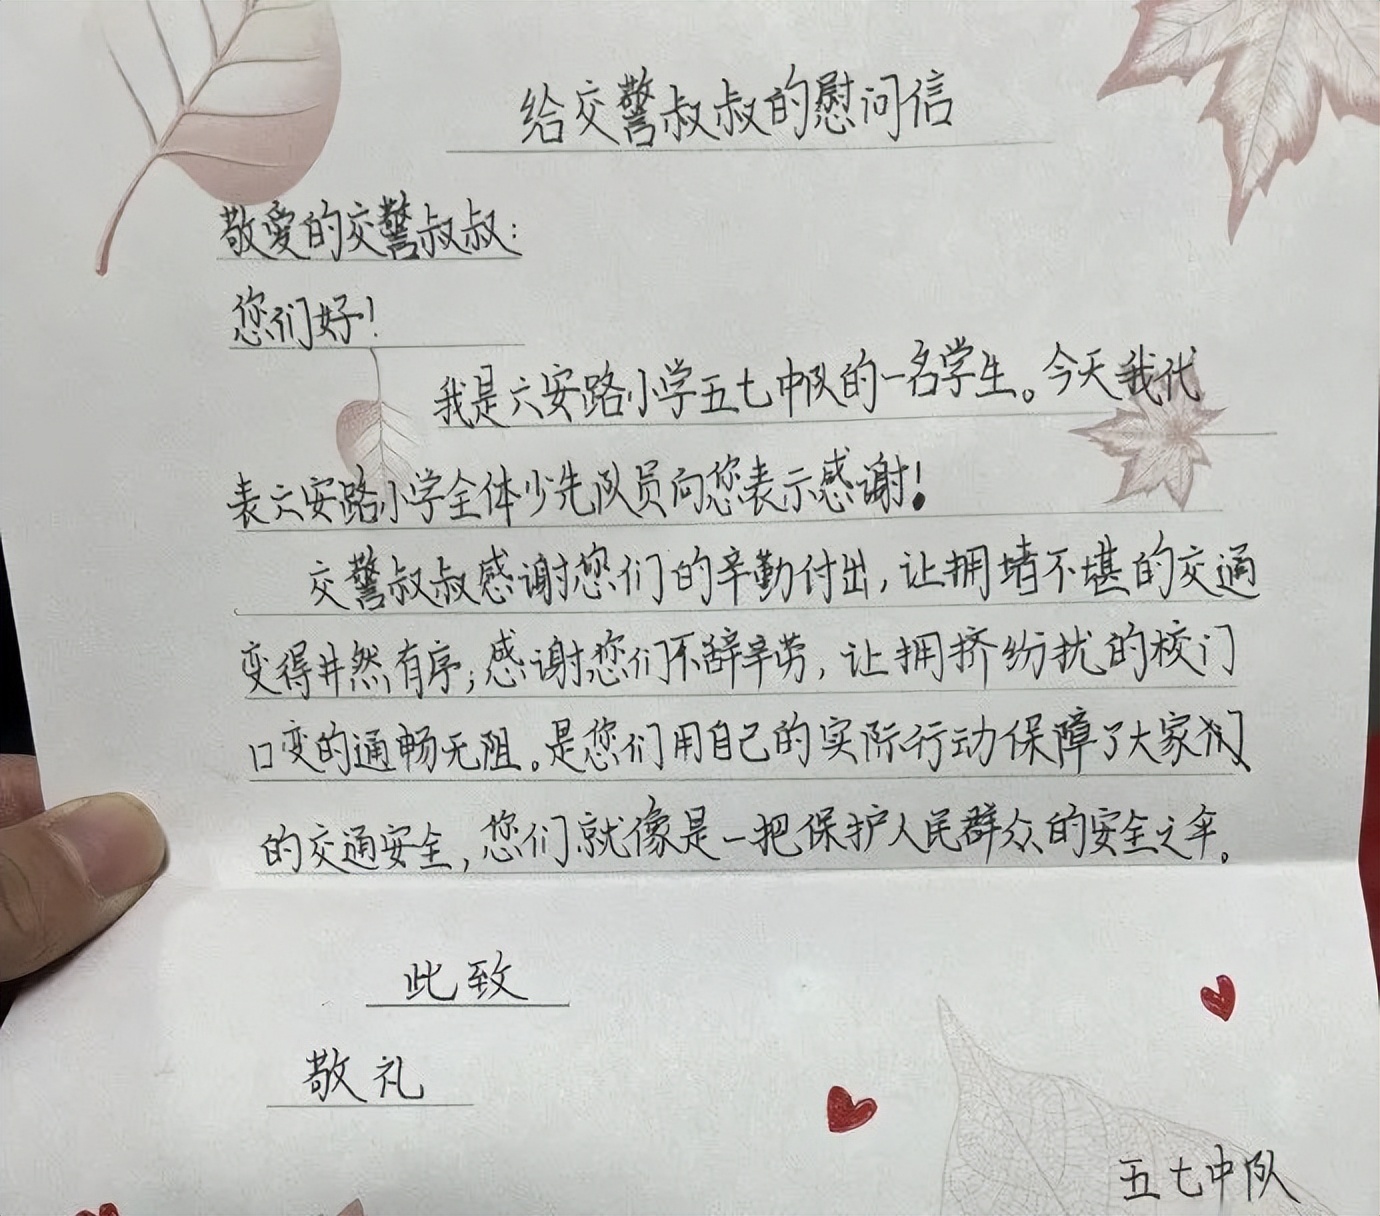 给交警叔叔的慰问信
敬爱的交警叔叔:
您们好!
我是六安路小学五七中队的一名学生。今天我代
表六安路小学全体少先队员向您表示感谢!
交警叔叔感谢您们的辛勤付出,让拥堵不堪的交通
变得井然有序;感谢您们不辞辛劳,让拥挤纷扰的校门
口变的通畅无阻。是您们用自己的实际行动保障了大家们
的交通安全,您们就像是一把保护人民群众的安全之伞。
此致
敬礼
五七中队